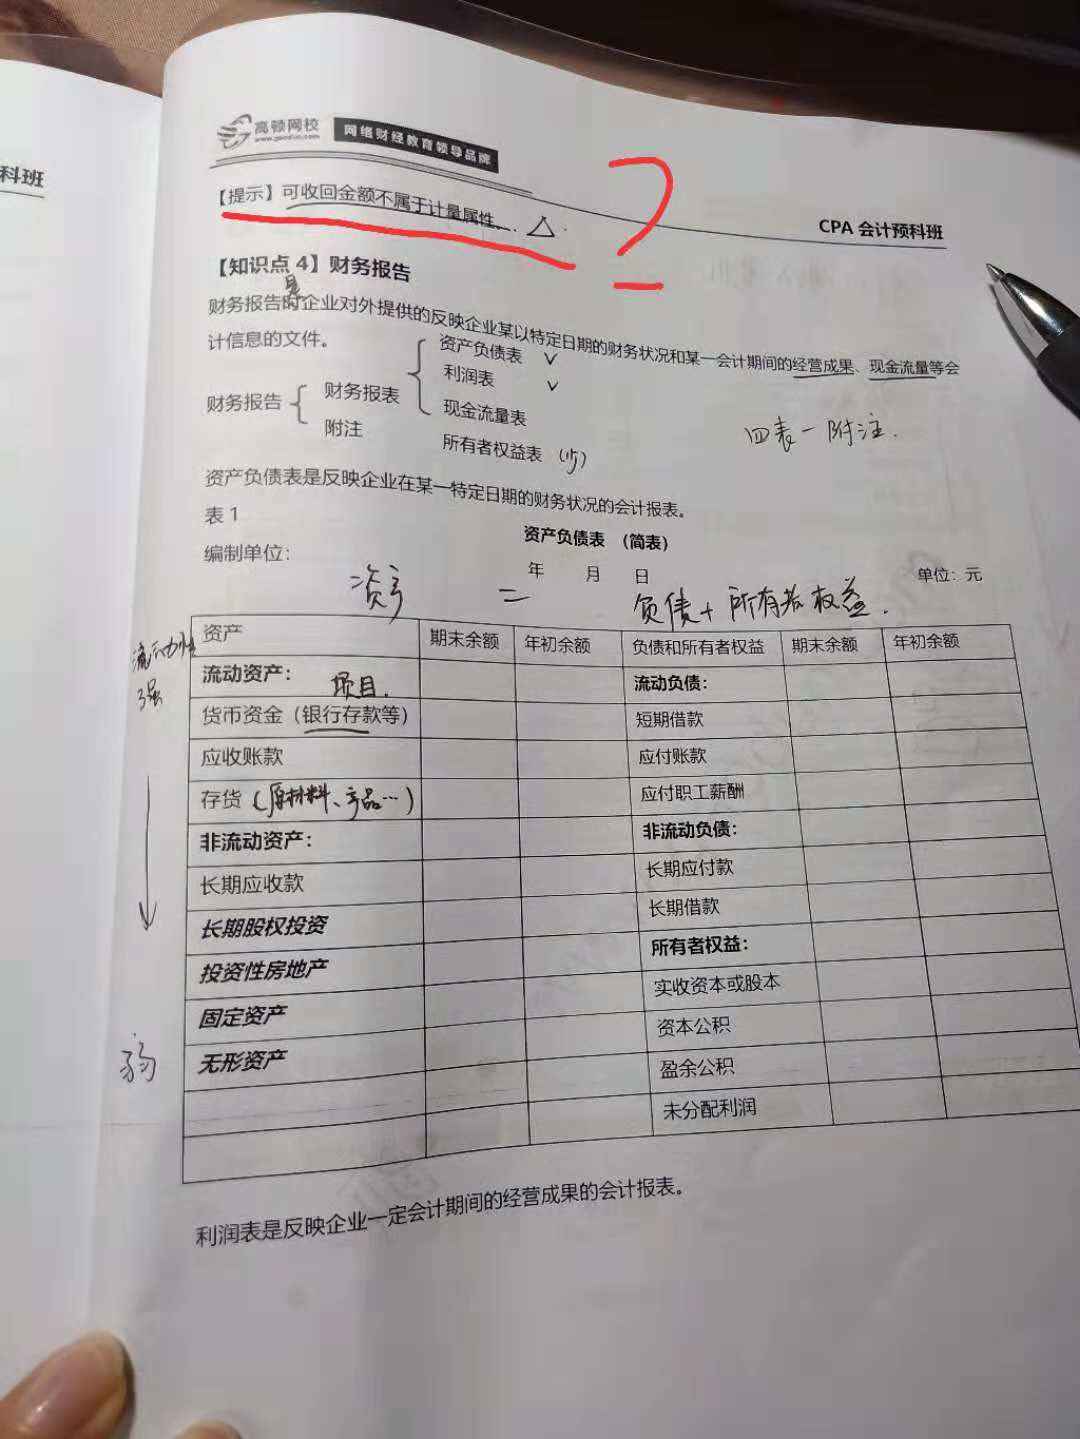 科班
高顿网校
网络财经教育领导品牌
【提示】可收回金额不属于计量属性。 △
?
CPA 会计预科班
【知识点 4】财务报告
是
财务报告时企业对外提供的反映企业某以特定日期的财务状况和某一会计期间的经营成果、现金流量等会
计信息的文件。
资产负债表 ✓
利润表 ✓
财务报告 { 财务报表 {
现金流量表
附注
所有者权益表
四表一附注.
资产负债表是反映企业在某一特定日期的财务状况的会计报表。
表 1
资产负债表 （简表）
编制单位： 年 月 日 单位：元
资产 = 负债+所有者权益.
流动性
强
资产 期末余额 年初余额 负债和所有者权益 期末余额 年初余额
流动资产： 项目. 流动负债：
货币资金（银行存款等） 短期借款
应收账款 应付账款
存货（原材料、产品…） 应付职工薪酬
非流动资产： 非流动负债：
长期应收款 长期应付款
长期股权投资 长期借款
投资性房地产 所有者权益：
固定资产 实收资本或股本
无形资产 资本公积
弱
盈余公积
未分配利润
利润表是反映企业一定会计期间的经营成果的会计报表。